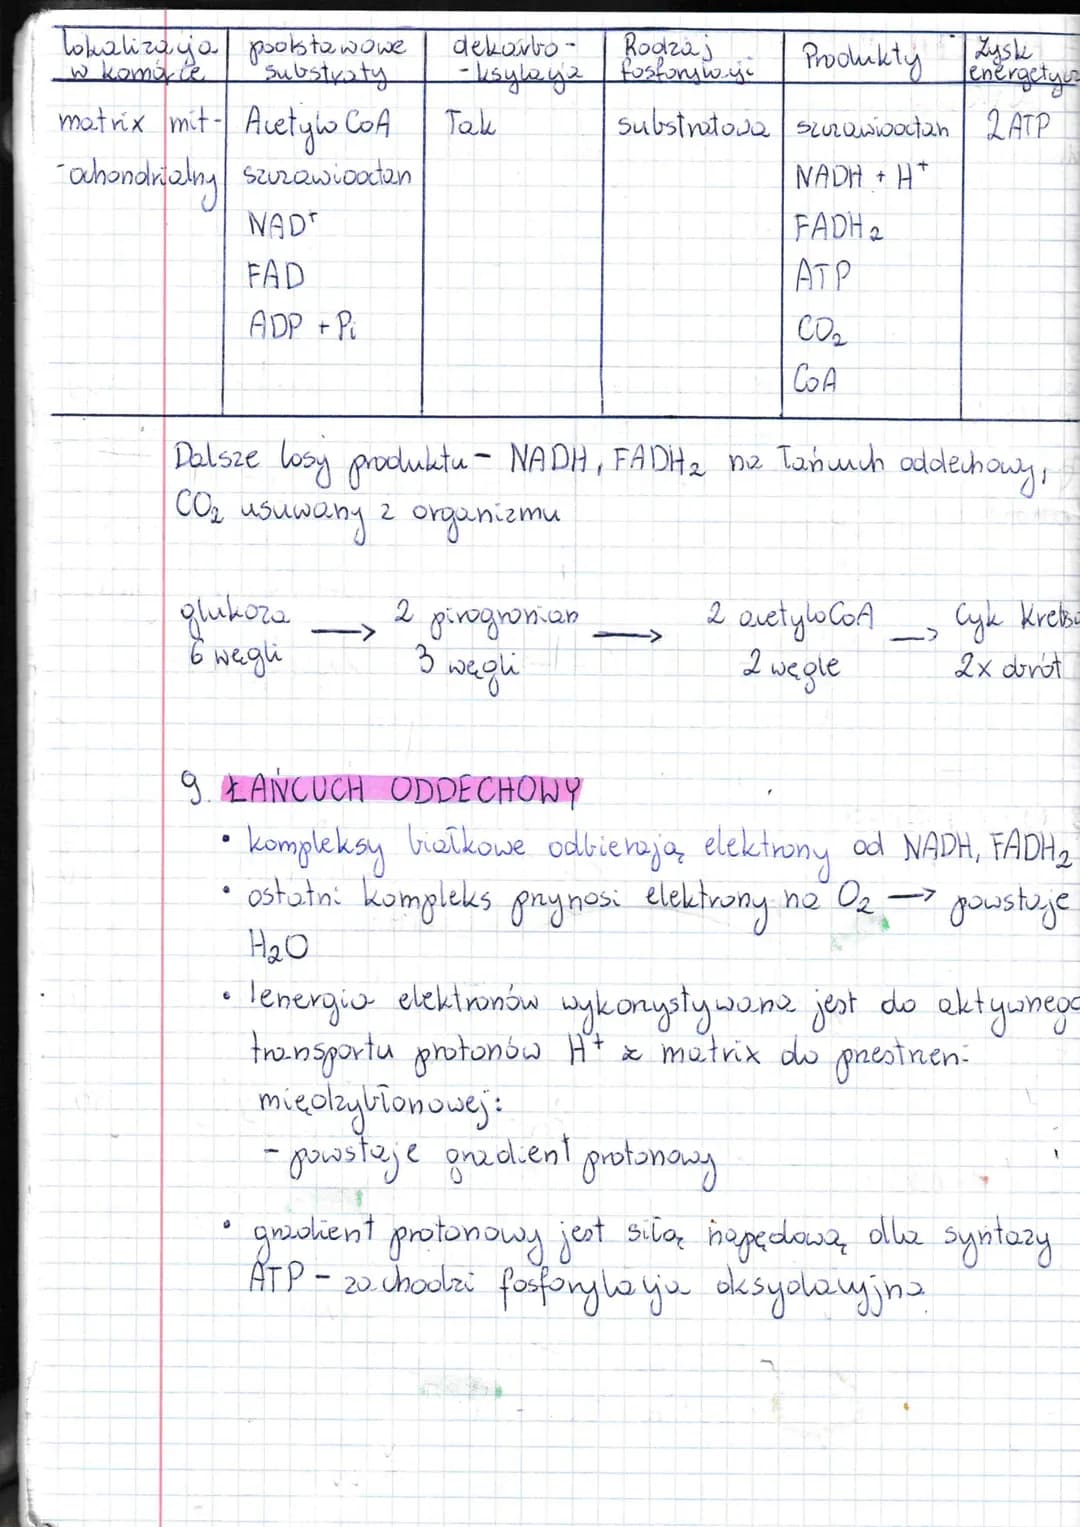 lokalizacja w komórce | podstawowe substraty | dekarbo-ksylacja | Rodzaj fosforylacji | Produkty | Zysk energetycz
matrix mit-ochondrialny | Acetylo CoA | Tak | substratowa | szczawiooctan | 2 ATP
szczawiooctan | NADH + H⁺
NAD⁺ | FADH₂
FAD | ATP
ADP + Pi | CO₂
CoA
Dalsze losy produktu - NADH, FADH₂ na łańcuch oddechowy,
CO₂ usuwany z organizmu
glukoza → 2 pirogronian → 2 acetyloCoA → Cykl Krebsa
6 węgli 3 węgli 2 węgle 2x obrót
9. ŁAŃCUCH ODDECHOWY
• kompleksy białkowe odbierają elektrony od NADH, FADH₂
• ostatni kompleks przynosi elektrony na O₂ → powstaje
H₂O
• energia elektronów wykorzystywana jest do aktywnego
transportu protonów H⁺ z matrix do przestrzeni
międzybłonowej:
- powstaje gradient protonowy
• gradient protonowy jest siłą napędową dla syntazy
ATP - zachodzi fosforylacja oksydacyjna